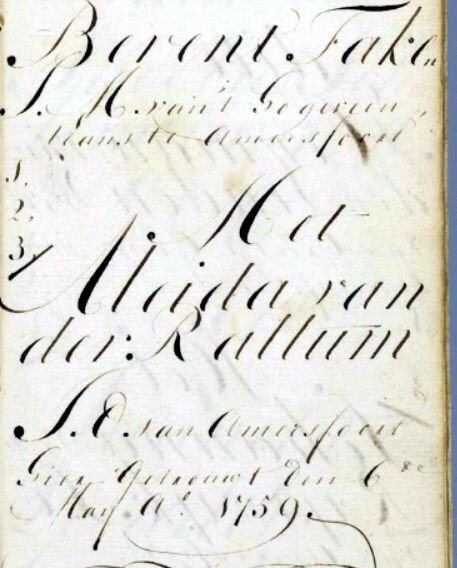 Berent Faken
J. M. van't Gogerein,
thans te Amersfoort
1,
2,
3,
Met
Aleida van
der: Rallum
J. D. van Amersfoort
Getrouwt den 6de
May Ao. 1759.